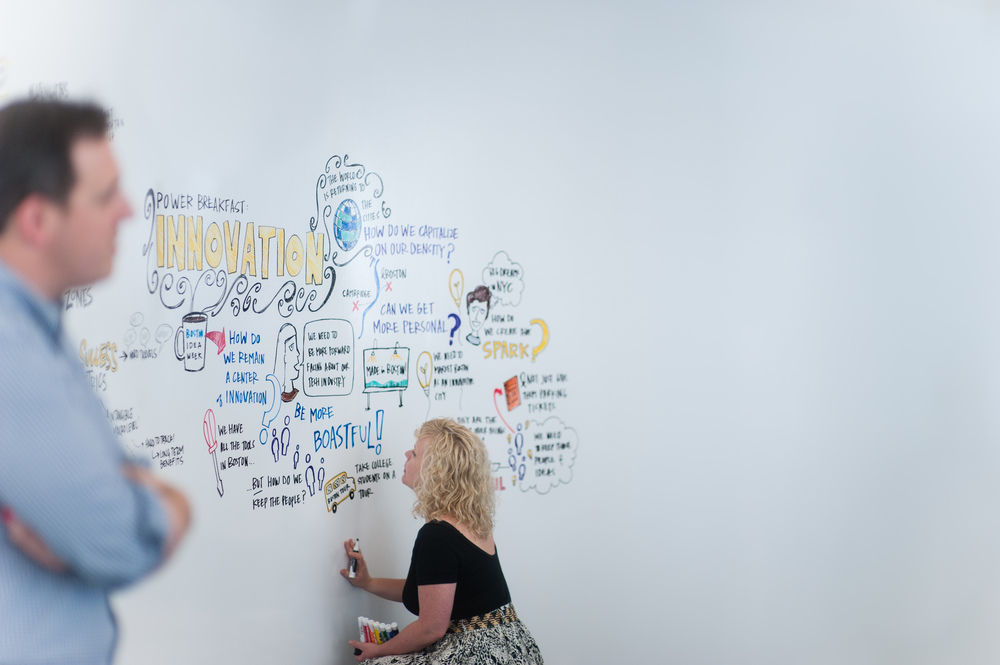 POWER BREAKFAST:
INNOVATION
THE WORLD
IS RETURNING TO
THE
CITIES
HOW DO WE CAPITALIZE
ON OUR DENCITY?
BOSTON
CAMBRIDGE
CAN WE GET
MORE PERSONAL?
NYC
HOW DO
WE CREATE
SPARK?
BOSTON
IDEA
WEEK
HOW DO
WE REMAIN
A CENTER
INNOVATION?
WE NEED TO
BE MORE FORWARD
FACING ABOUT OUR
TECH INDUSTRY
MADE IN BOSTON
WE NEED TO
MARKET BOSTON
AS AN INNOVATION
CITY
NOT JUST GIVE
THEM PARKING
TICKETS
BE MORE
BOASTFUL!
WE HAVE
ALL THE TOOLS
IN BOSTON...
...BUT HOW DO WE
KEEP THE PEOPLE?
TAKE COLLEGE
STUDENTS ON A
TOUR
WE NEED
TO KEEP THESE
PEOPLE &
IDEAS
SUCCESS
HARD TO TRACK!
LONG TERM
BENEFITS